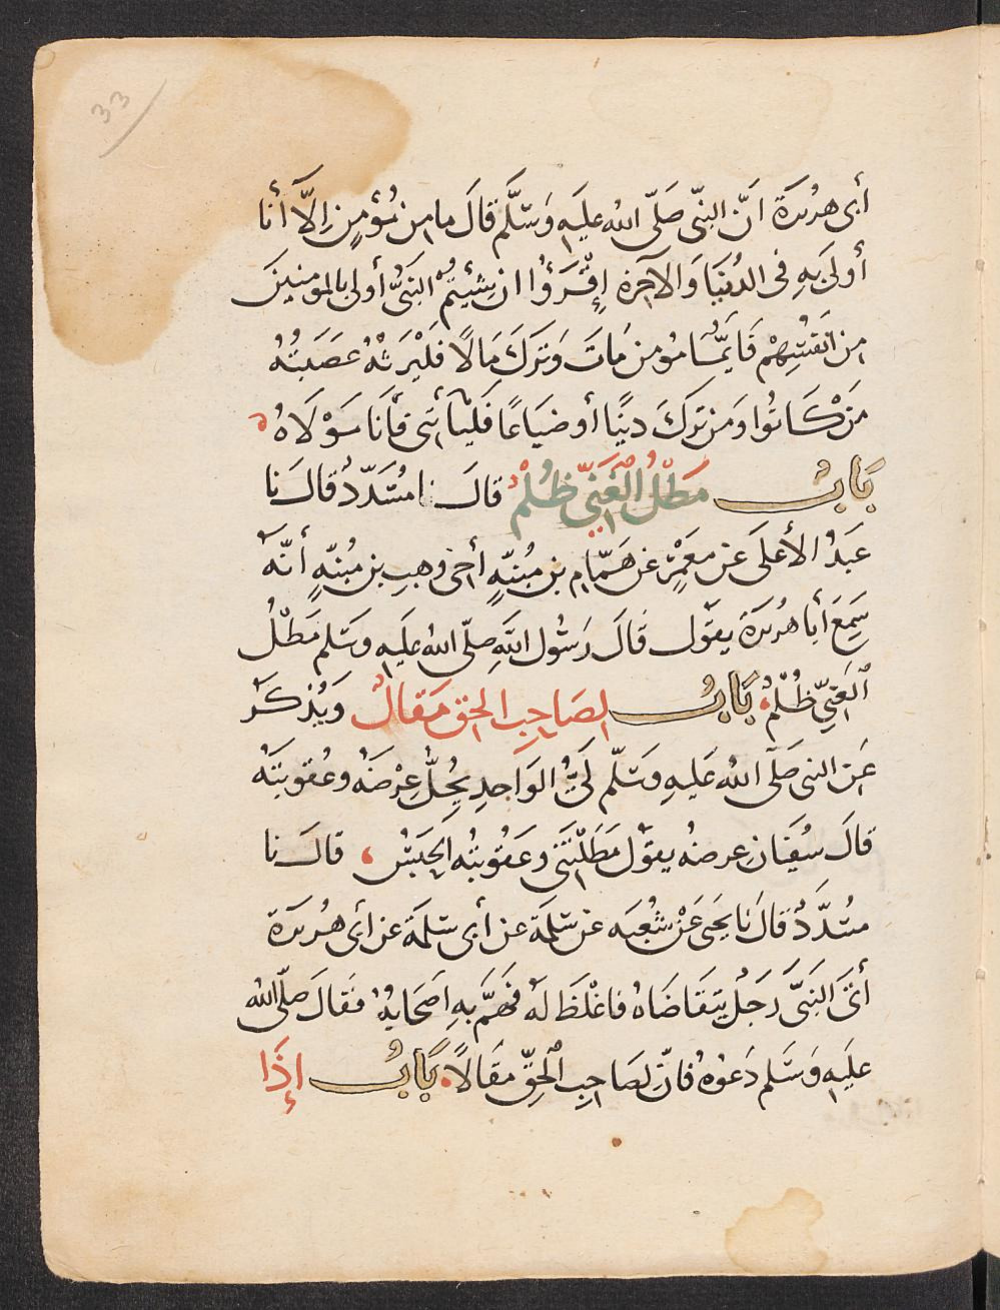 33
أبى هريرة انّ النبّى صَلّى الله عليهِ وَسَلَّم قالَ ما من مُؤمنٍ إلَّا أنا
أولَى بهِ فى الدُنيَا وَالآخرة إقْرَؤُا ان شِئيتُمْ النَبىُّ أولى بالمومنِينَ
من انفسُهِمْ فَايمَّا مُومن مَاتَ وَتَرَكَ مَالًا فليَرثْهُ عَصَبتُهُ
مَنْ كَانُوا وَمَن تركَ دينًا أو ضيَاعًا فَليَأتنى فأنَا مَوْلَاهُ
بَابُ مَطْلُ الْغَنِىّ ظُلْمٌ قالَ نا مُسَدّدُ قالَ نا
عَبدُ الأعلَى عَن معَمْرٍ عن هَمَّام بن مُنبّهٍ أخى وَهبِ بن مُنبّهٍ أنّهُ
سَمِعَ أبا هُريرة يقوُل قالَ رَسُول اللّهِ صلّى الله عليَهِ وسَلم مَطْلُ
الْغَنِىّ ظُلْمٌ بَابُ لصَاحِبِ الحق مَقالُ وَيُذكَرُ
عَن النبى صَلّى الله عَليهِ وَسَلّم لَىُّ الوَاجدِ يُحِلُّ عِرْضَهُ وعُقوبتَهُ
قالَ سُفيَان عِرضهُ يقوُل مَطَلْتَنى وعَقُوبتُه الحَبسُ قالَ نا
مسَدَّدُ قالَ نا يَحيى عَنْ شُعبَه عن سَلمَة عن أبى سَلمَة عن أبى هُريرة
أتَى النَبَىَّ رَجَلُ يَتَقَاضَاهُ فاغْلظَ لهُ فَهَمَّ بهِ اصَحَابهُ فقالَ صلّى الله
عليَهِ وَسَلم دَعوُه فانّ لصَاحِبِ الْحقِّ مقَالًا بَابُ إذَا